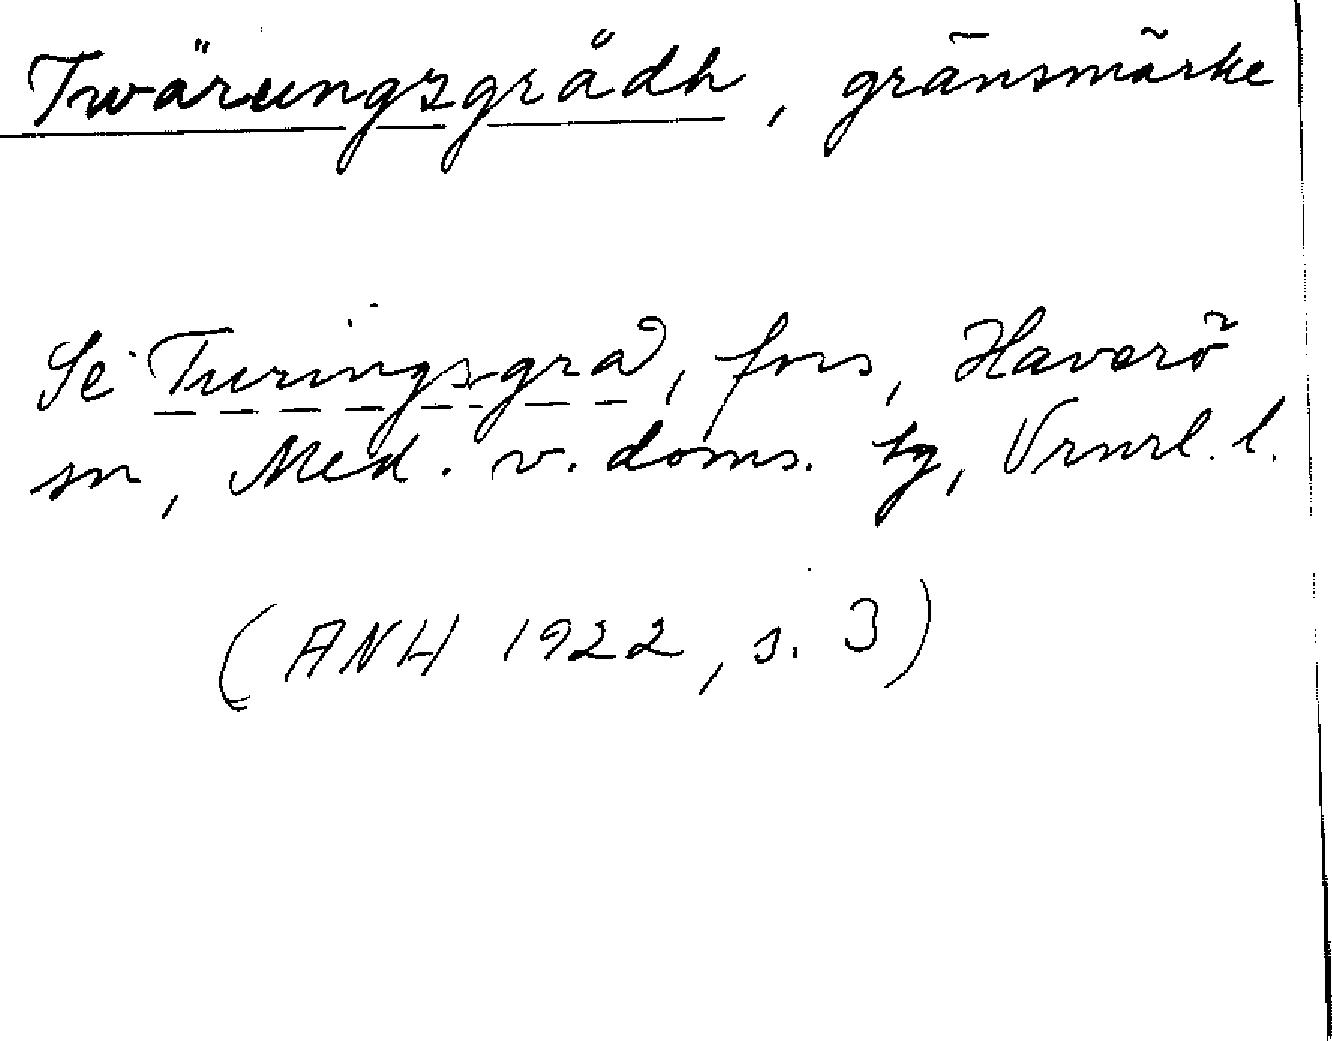 Twärungsgrådh, gränsmärke
Se Turingsgra, fors, Haverö
sn, Med. v. doms. tg, Vrnrl. l.
(ANH 1922, s. 3)